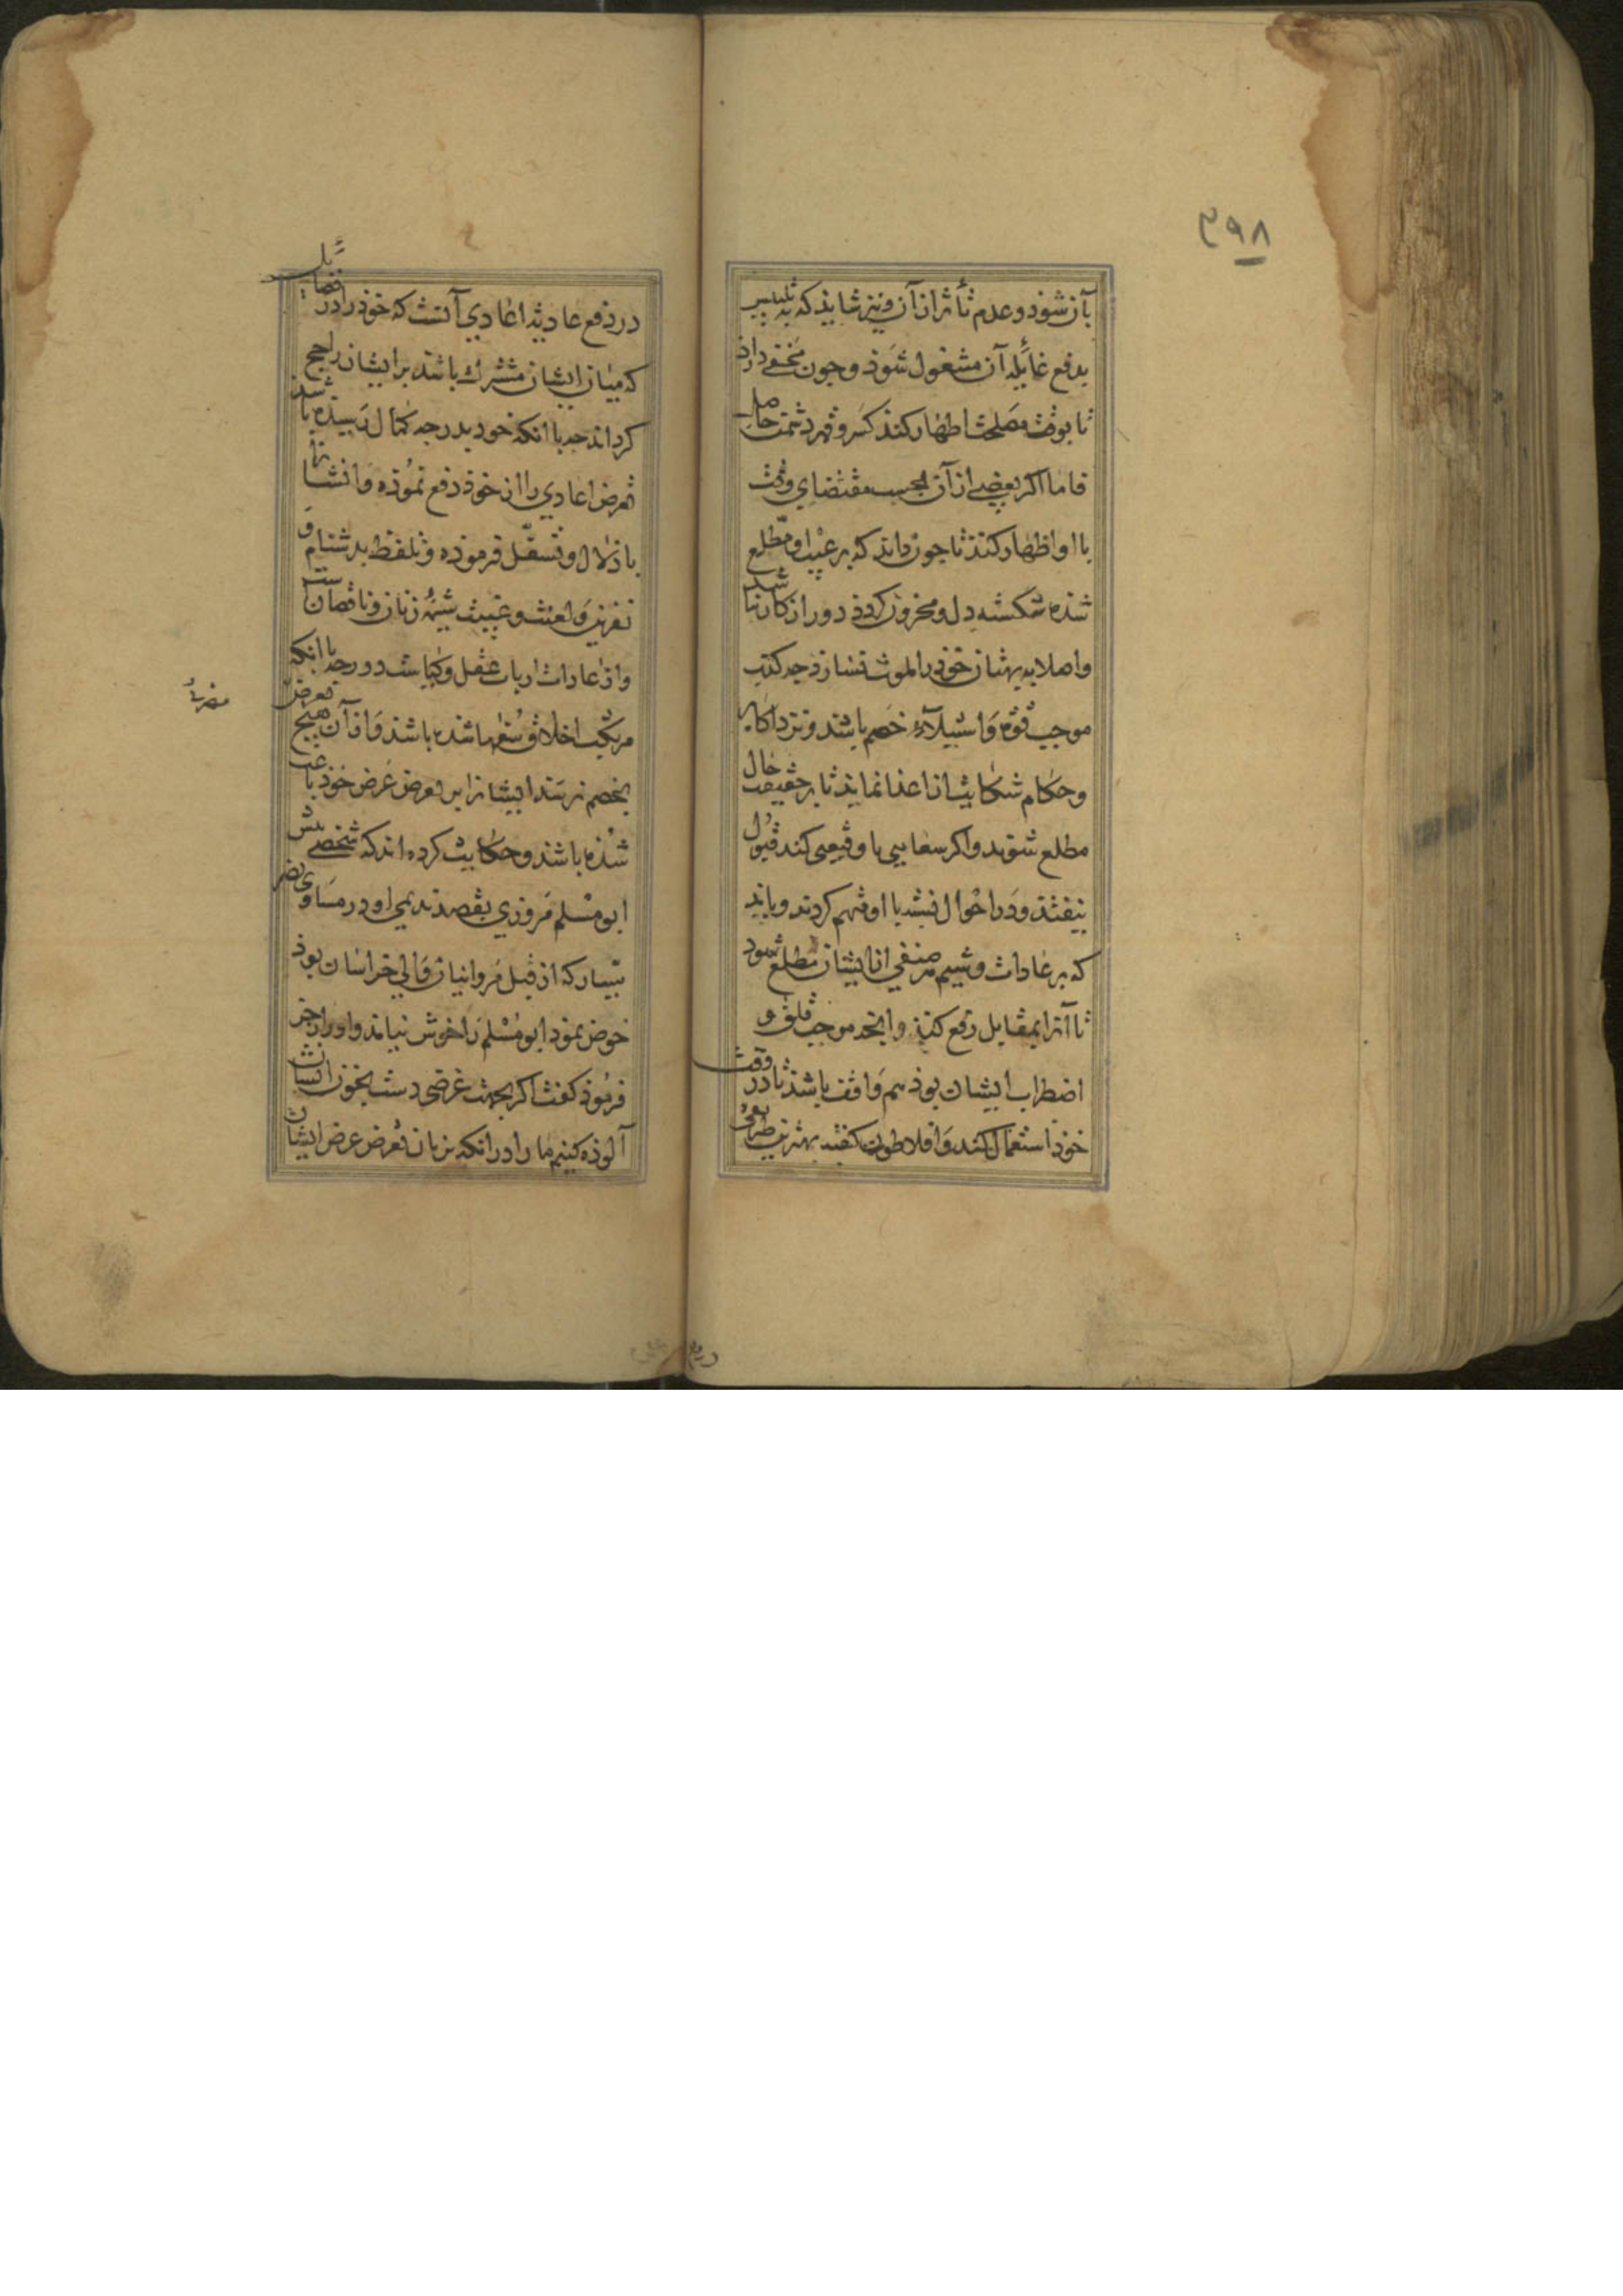 ۳۹۸
بآن شوذ و عدم تأثر از آن و نیز شایذ که به تلبیس
بدفع غایله آن مشغول شوذ و جون مخفی دارذ
تا بوقت مصلحت اظهار کند کسر و قهر دشمن حاصل
فاما اکر بعضی از آن بحسب مقتضای وقت
با او اظهار کنند تا جون داند که بر عیب او مطلع
شذه شکسته دل و محزون کردد دور از کار نباشد
و اصلا به بهتان خوذ را ملوث نسازد جه کذب
موجب قوة و استیلاء خصم باشد و نزد اکابر
و حکام شکایت از اعدا نماید تا بر حقیقت حال
مطلع شوند و اکر سعایتی یا وقیعتی کند قبول
نیفتد و در احوال با او متهم کردند و باید
که بر عادات و شیم هر صنفی از ایشان مطلع شود
تا آنرا بمقابل دفع کند و انجه موجب قلق و
اضطراب ایشان بوذ هم واقف باشذ تا در وقت
خوذ استعمال کند و افلاطون کفته بهترین طریقی
در دفع عادیه اعادی آنست که خوذ را در فضایلی
که میان ایشان مشترک باشد بر ایشان راجح
کرداند جه با انکه خود بدرجه کمال رسیده باشد
تعرض اعادی را از خوذ دفع نموده و انتشا
باذلال و تسفل فرموده و تلفظ بدشنام و
نفرین و لعنت و غیبت شیوه زنان و ناقصان است
و از عادات ارباب عقل و کیاست دور جه با انکه
مرتکب اخلاق سفها شده باشد و از آن هیج
بخصم نرسد ایشانرا بر تعرض عرض خوذ باعث
شذه باشد و حکایت کرده اند که شخصی پیش
ابو مسلم مروزی بقصد تدیمی او در مساوی نصر
سیار که از قبل مروانیان والی خراسان بوذ
خوض نمود ابو مسلم را خوش نیامد و او را زجر
فرموذ کفت اکر بجهت غرضی دست بخون ایشان
آلوذه کنیم ما را در انکه بزبان تعرض عرض ایشان